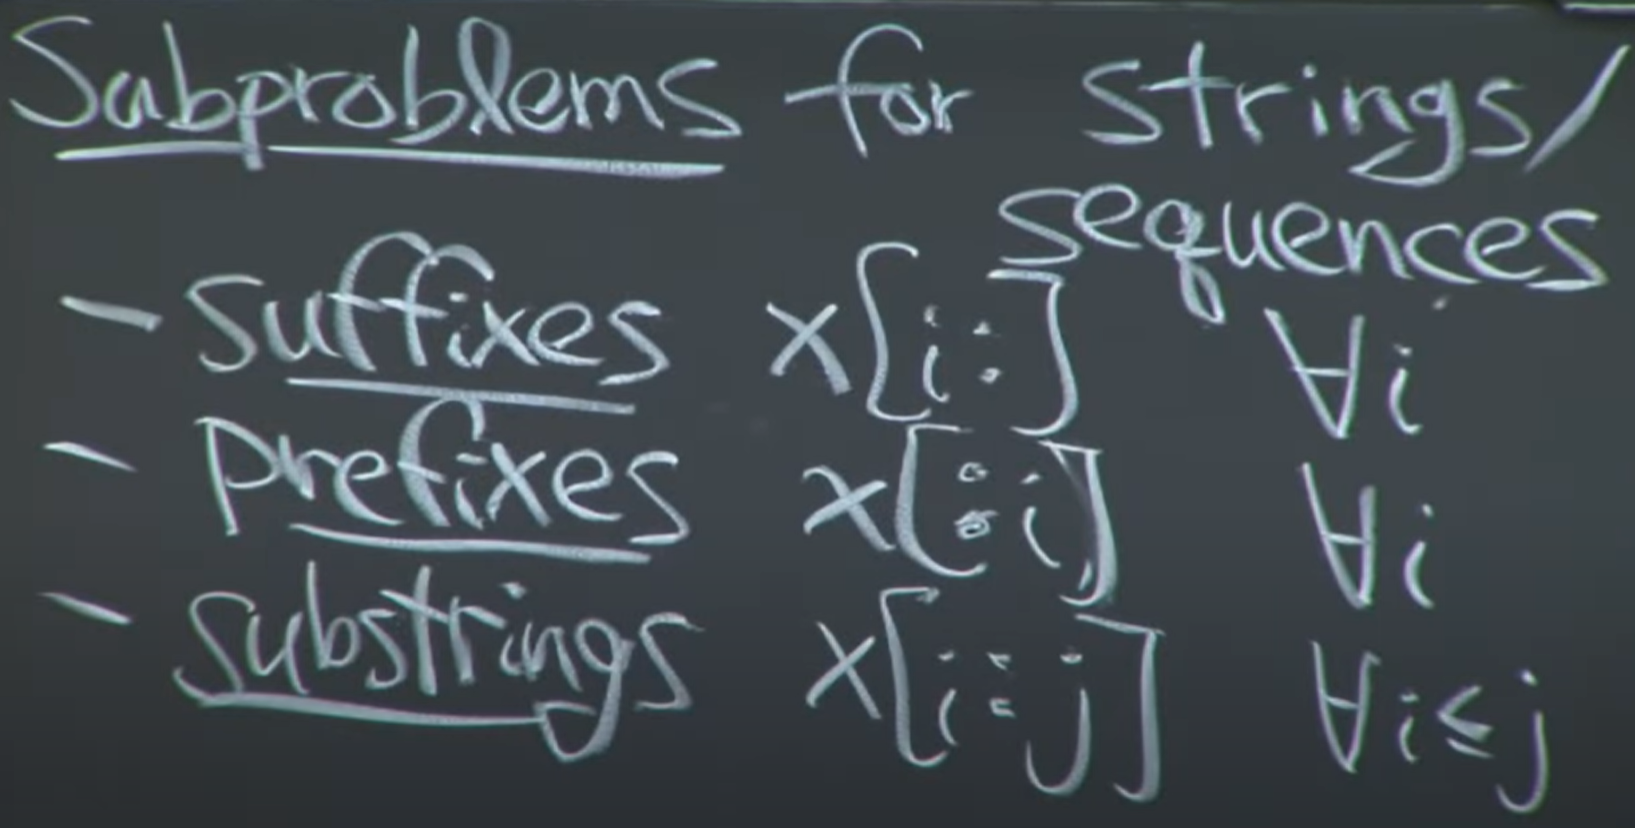 Subproblems for strings/
sequences
- suffixes x[i:] ∀i
- prefixes x[:i] ∀i
- substrings x[i:j] ∀i≤j